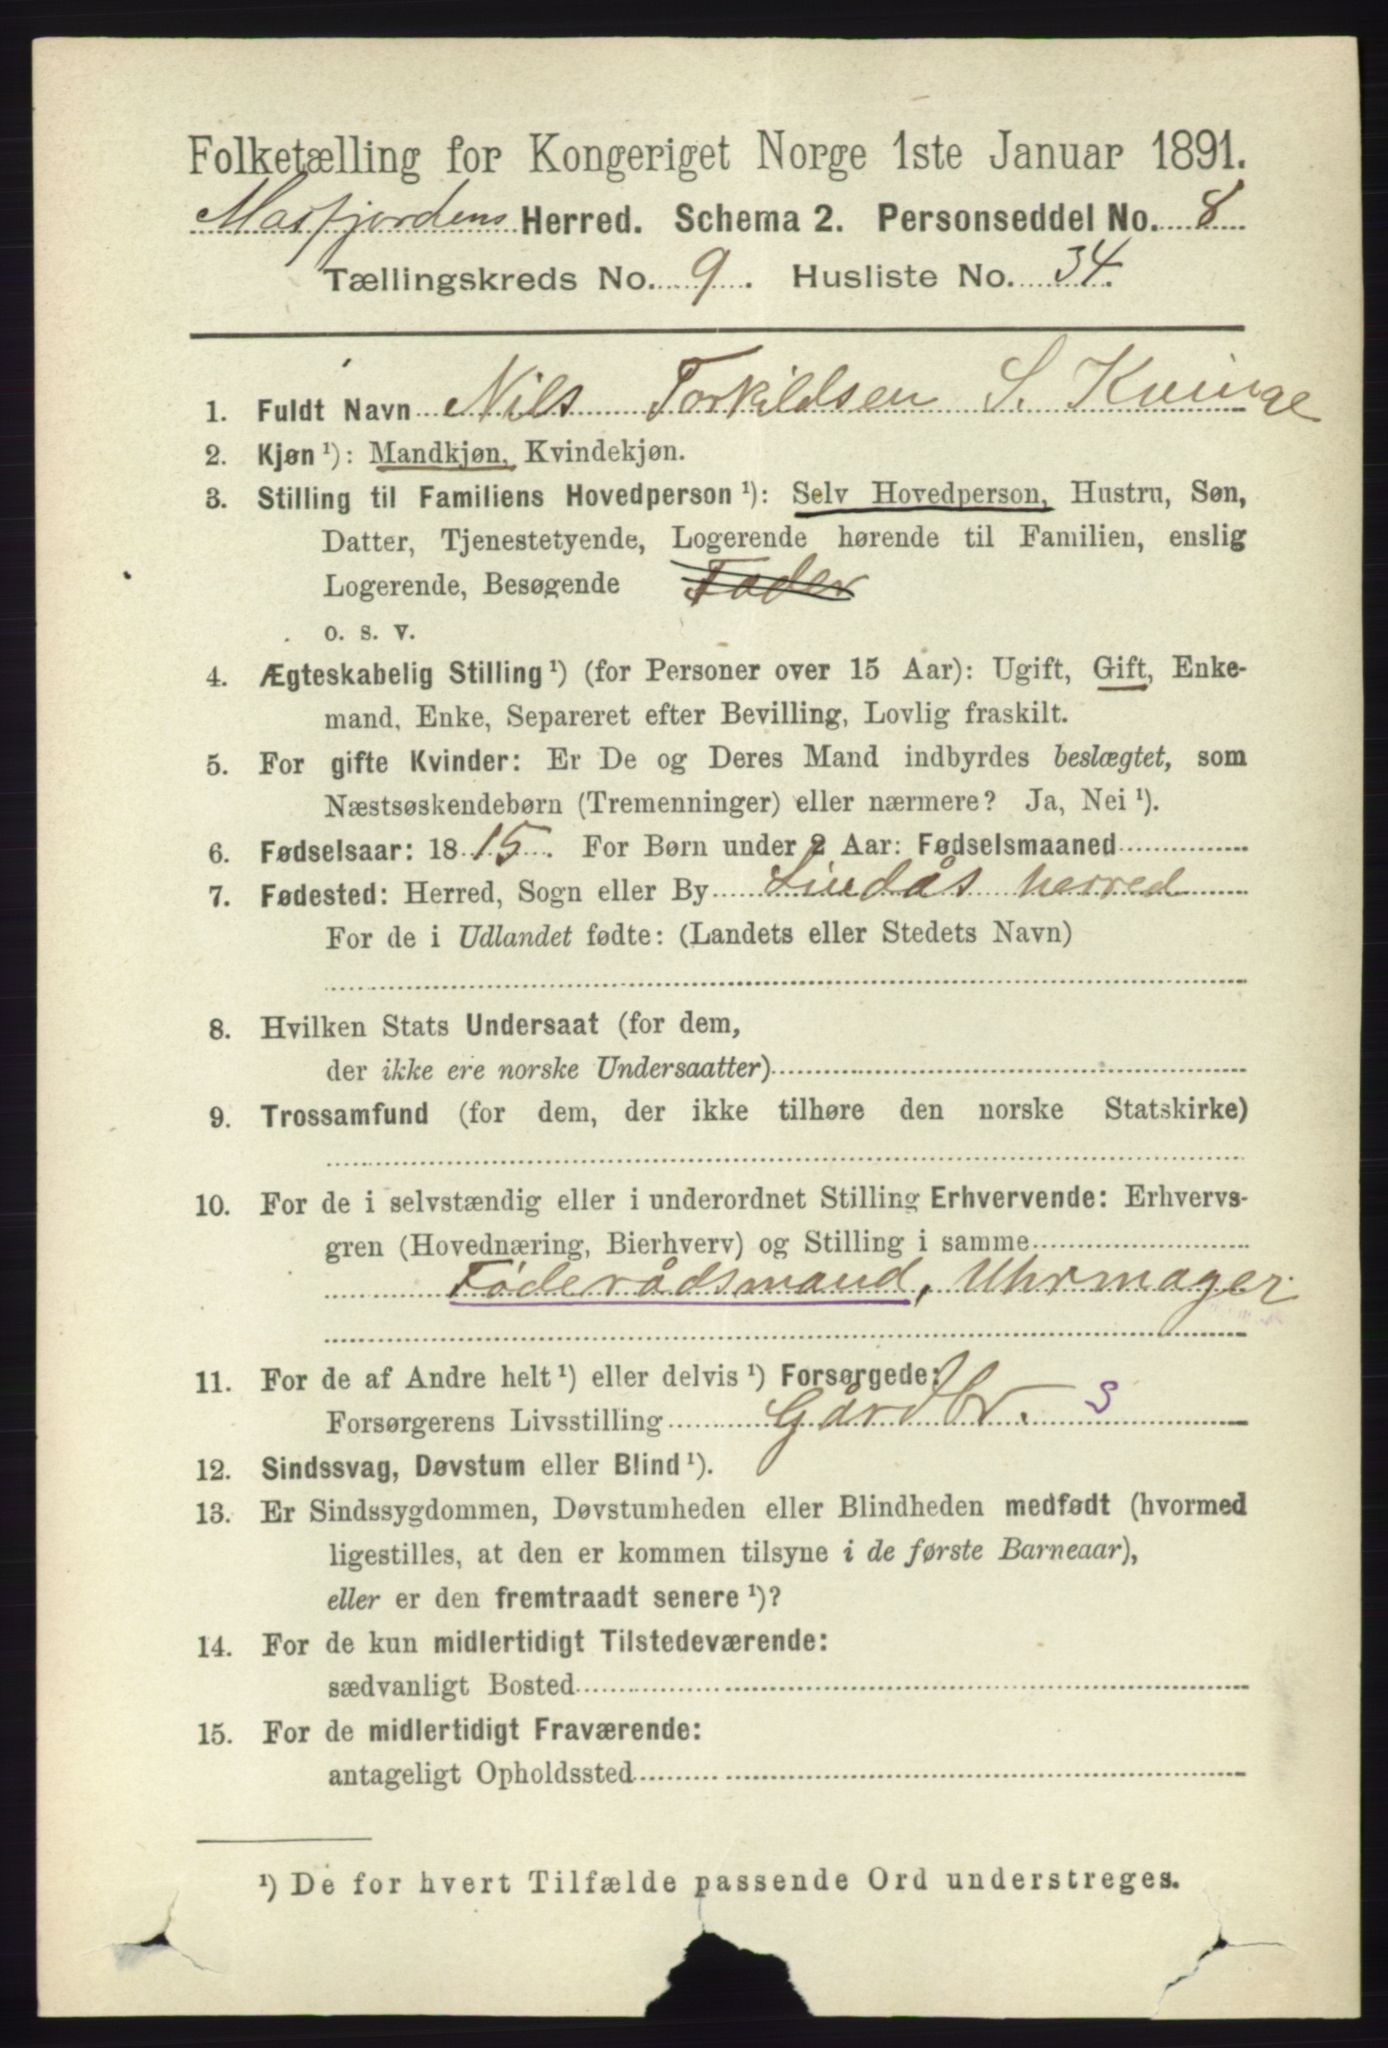 Folketælling for Kongeriget Norge 1ste Januar 1891.
Masfjordens Herred. Schema 2. Personseddel No. 8
Tællingskreds No. 9. Husliste No. 34.
1. Fuldt Navn Nils Torkildsen S. Kvinge
2. Kjøn ¹): Mandkjøn, Kvindekjøn.
3. Stilling til Familiens Hovedperson ¹): Selv Hovedperson, Hustru, Søn,
Datter, Tjenestetyende, Logerende hørende til Familien, enslig
Logerende, Besøgende Fader
o. s. v.
4. Ægteskabelig Stilling ¹) (for Personer over 15 Aar): Ugift, Gift, Enke-
mand, Enke, Separeret efter Bevilling, Lovlig fraskilt.
5. For gifte Kvinder: Er De og Deres Mand indbyrdes beslægtet, som
Næstsøskendebørn (Tremenninger) eller nærmere? Ja, Nei ¹).
6. Fødselsaar: 1815. For Børn under 2 Aar: Fødselsmaaned
7. Fødested: Herred, Sogn eller By Lindås herred
For de i Udlandet fødte: (Landets eller Stedets Navn)
8. Hvilken Stats Undersaat (for dem,
der ikke ere norske Undersaatter)
9. Trossamfund (for dem, der ikke tilhøre den norske Statskirke)
10. For de i selvstændig eller i underordnet Stilling Erhvervende: Erhvervs-
gren (Hovednæring, Bierhverv) og Stilling i samme
Føderådsmand, Uhrmager
11. For de af Andre helt ¹) eller delvis ¹) Forsørgede:
Forsørgerens Livsstilling Gårdbr. S
12. Sindssvag, Døvstum eller Blind ¹).
13. Er Sindssygdommen, Døvstumheden eller Blindheden medfødt (hvormed
ligestilles, at den er kommen tilsyne i de første Barneaar),
eller er den fremtraadt senere ¹)?
14. For de kun midlertidigt Tilstedeværende:
sædvanligt Bosted
15. For de midlertidigt Fraværende:
antageligt Opholdssted
¹) De for hvert Tilfælde passende Ord understreges.